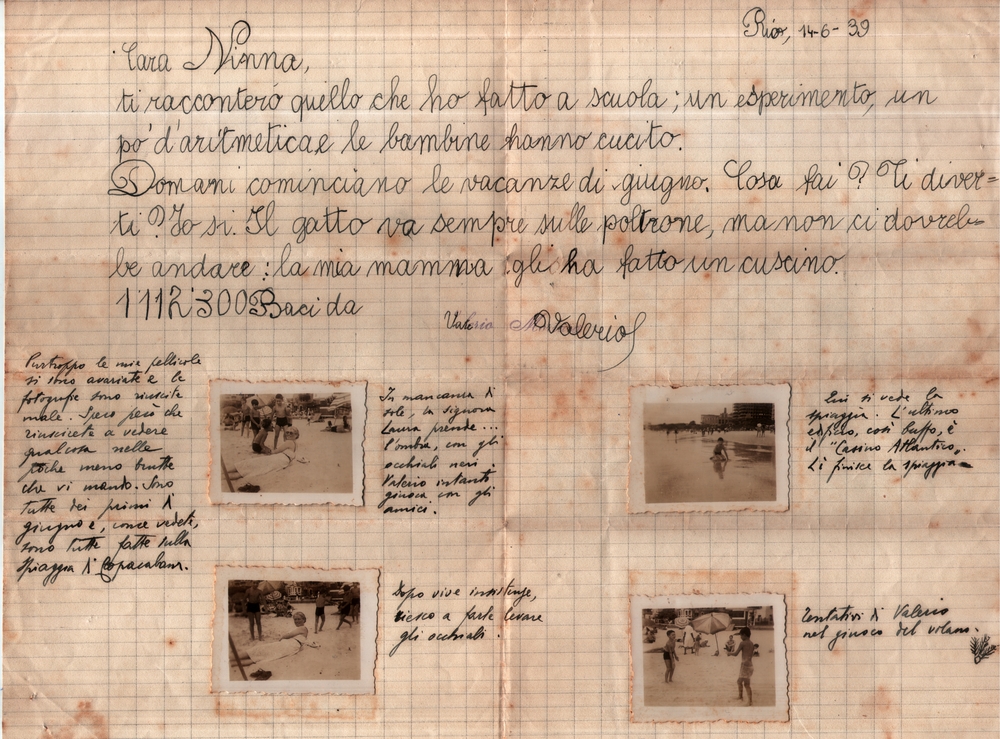 Rio, 14-6-39
Cara Ninna,
ti racconterò quello che ho fatto a scuola; un esperimento, un
pò d'aritmetica,e le bambine hanno cucito.
Domani cominciano le vacanze di giugno. Cosa fai? Ti diver=
ti? Io si. Il gatto va sempre sulle poltrone, ma non ci dovreb=
be andare: la mia mamma gli ha fatto un cuscino.
1'112'300 Baci da
Valerio
Purtroppo le mie pellicole
si sono avariate e le
fotografie sono riuscite
male. Spero però che
riuscirete a vedere
qualcosa nelle
poche meno brutte
che vi mando. Sono
tutte dei primi di
giugno e, come vedete,
sono tutte fatte sulla
spiaggia di Copacabana.
In mancanza di
sole, la signora
Laura prende...
l'ombra, con gli
occhiali neri.
Valerio intanto
giuoca con gli
amici.
Qui si vede la
spiaggia. L'ultimo
edificio, così buffo, è
il "Casino Atlantico".
Lì finisce la spiaggia
Dopo vive insistenze,
riesco a farle levare
gli occhiali.
Tentativi di Valerio
nel giuoco del volano.